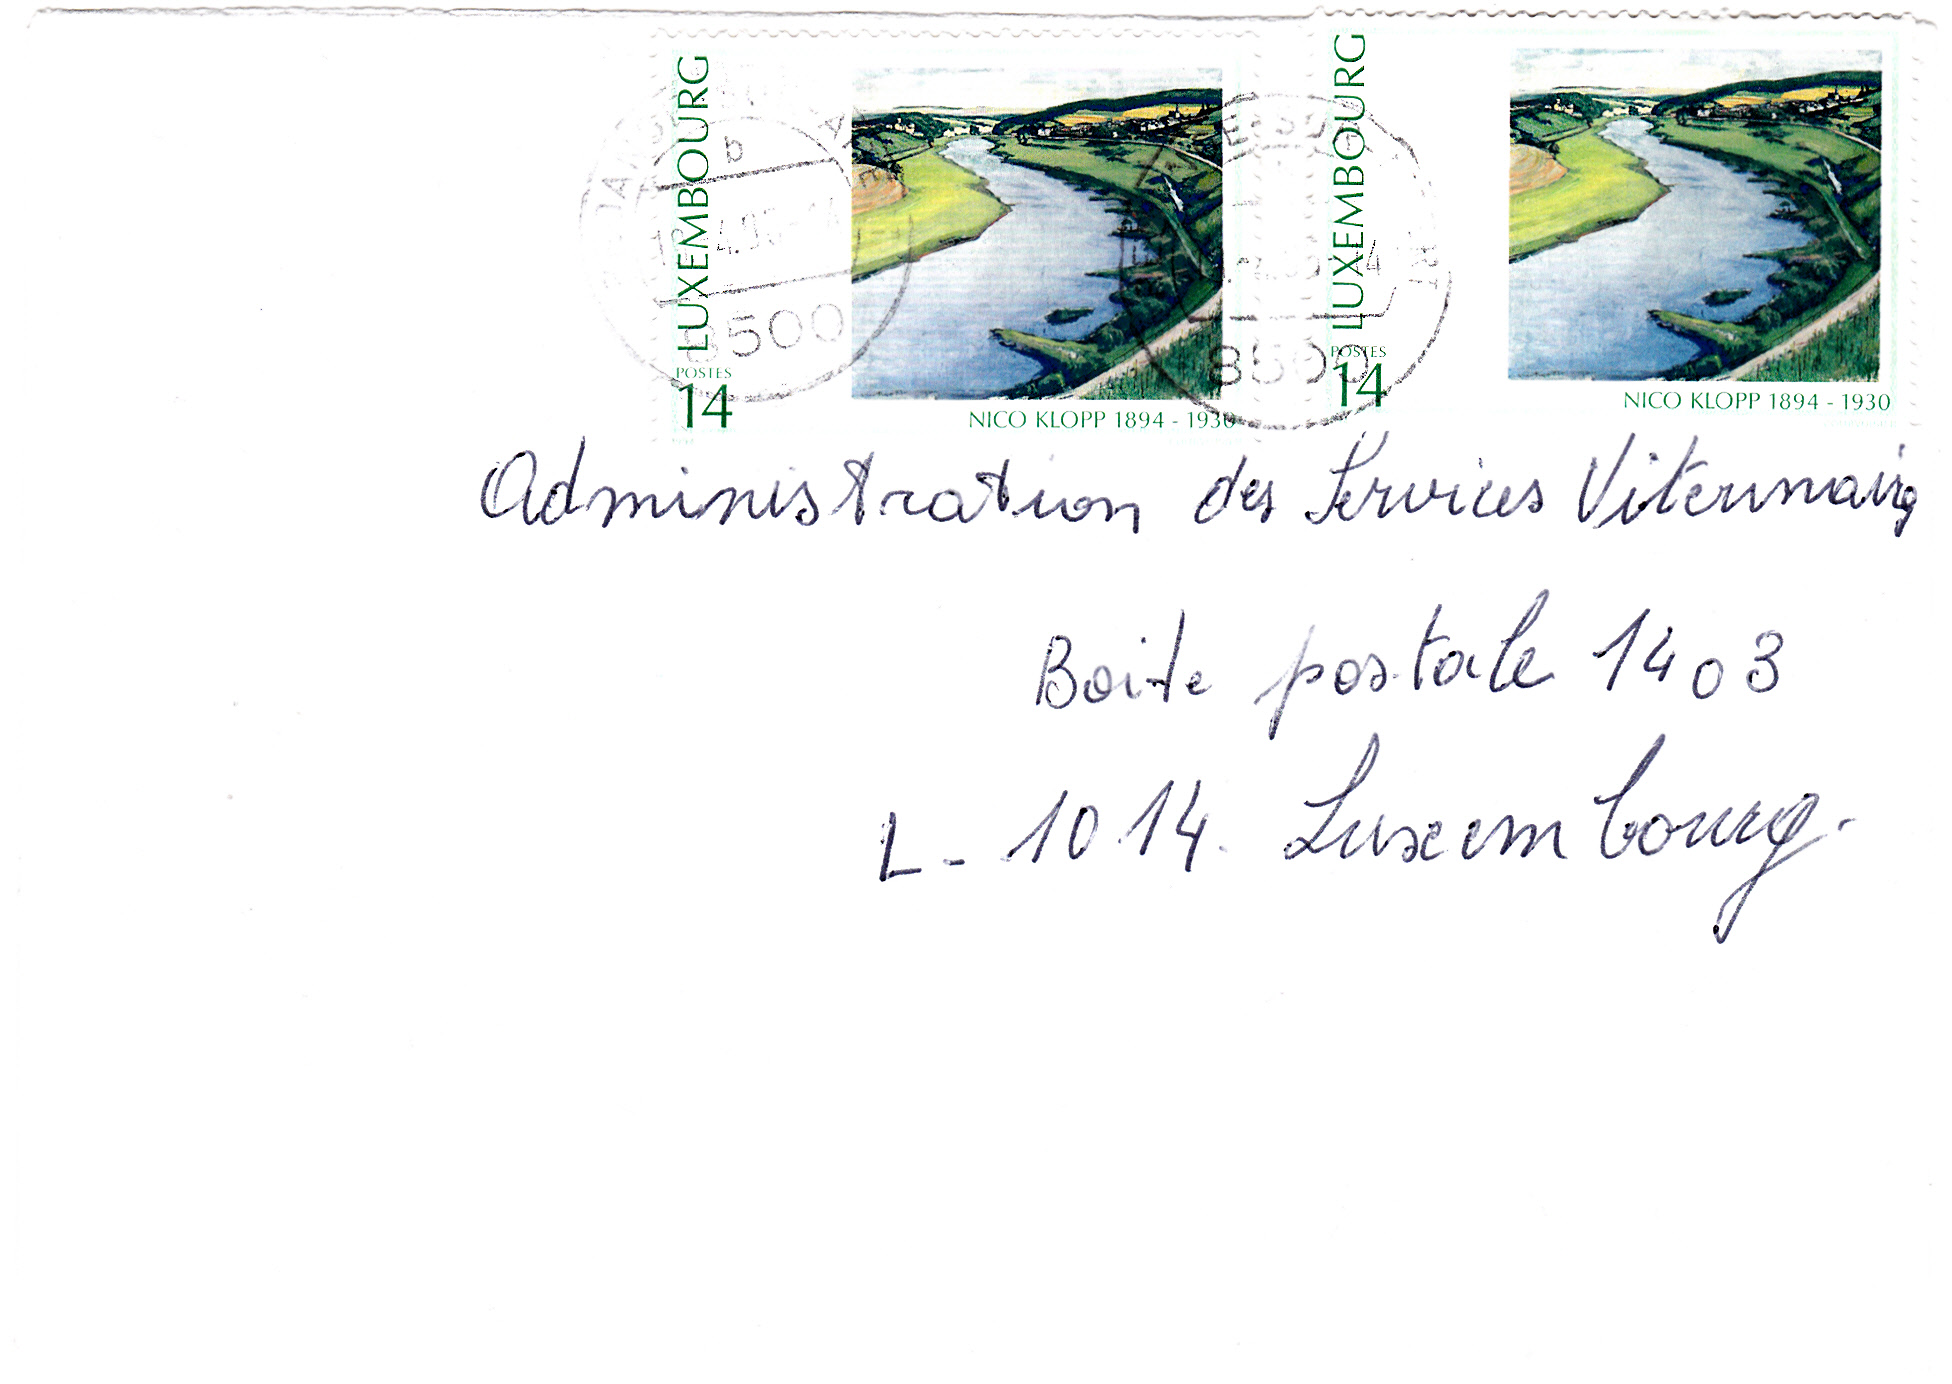 LUXEMBOURG
POSTES
14
NICO KLOPP 1894 - 1930
LUXEMBOURG
POSTES
14
NICO KLOPP 1894 - 1930
b
8500
8500
Administration des Services Viterinaires
Boite postale 1403
L - 1014 Luxembourg.